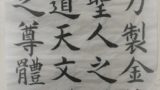 製金
聖人之
道天文
之尊體